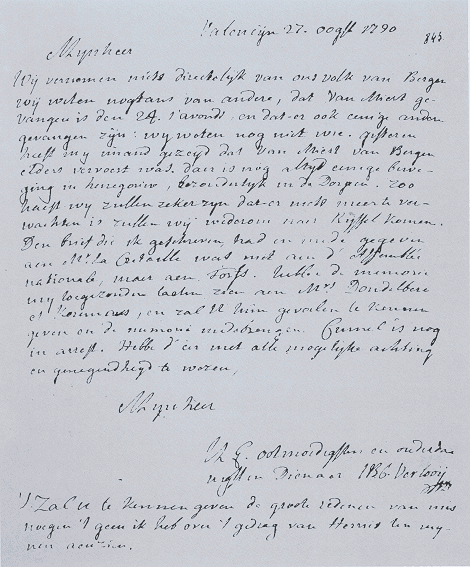 Valencijn 27. oogst 1790
843.
Mynheer
Wij vernemen niets directelijk van ons volk van Bergen
wij weten nogtans van andere, dat van Miert ge-
vangen is den 24. s'avonds en dat er ook eenige andere
gevangen zijn: wij weten nog niet wie. gisteren
heeft my imand gezegd dat van Miert van Bergen
elders vervoert was. daer is nog altyd eenige bewe-
ging in henegouw, bezonderlijk in de Dorpen. zoo
haest wij zullen zeker zyn dat er niets meer te ver-
wachten is zullen wij wederom naer Ryssel komen.
Den brief die ik geschreven had en mede gegeven
aen Mr. la was niet aen d'Assemblée
nationale, maer aen Torfs. hebbe de memorie
my toegezonden laeten zien aen Mrs Doudelberg
et , en zal U hun gevoelen te kennen
geven en de memorie medebrengen. is nog
in arrest. Hebbe d'eer met alle mogelijke achting
en genegendheyd te wezen,
Mynheer
U E. ootmoedigsten en onderda-
nigsten Dienaer JBC Verlooij
'T Zal U te kennen geven de groote redenen van mis-
noegen 't geen ik heb over 't gedrag van Herries ten my-
nen aenzien.